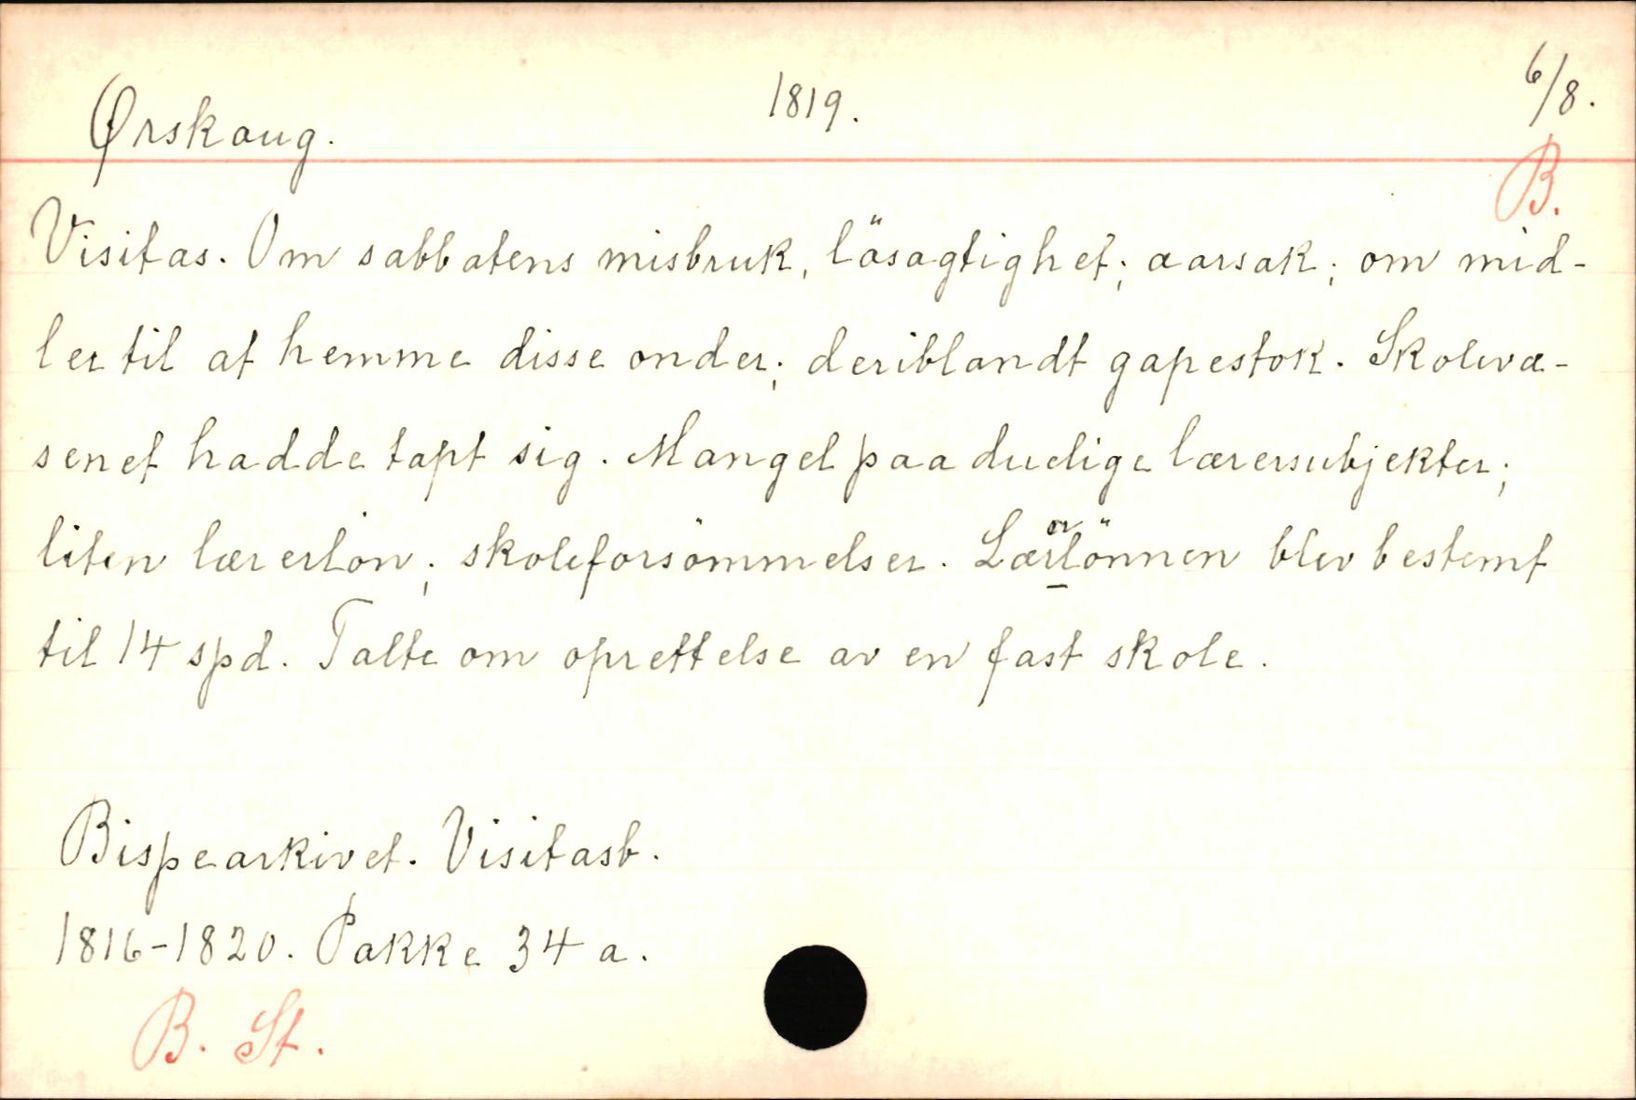 Ørskoug. 1819. 6/8.
B.
Visitas. Om sabbatens misbruk, lösagtighet; aarsak; om mid-
ler til at hemme disse onder; deriblandt gapestok. Skolevæ-
senet hadde tapt sig. Mangel paa duelige lærersubjekter;
liten lærerlön; skoleforsömmelser. Lærerlönnen blev bestemt
til 14 spd. Talte om oprettelse av en fast skole.
Bispearkivet. Visitasb.
1816-1820. Pakke 34 a.
B. St.